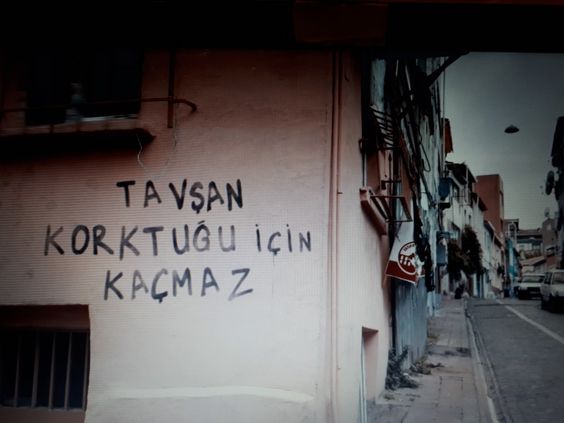 TAVŞAN
KORKTUĞU İÇİN
KAÇMAZ